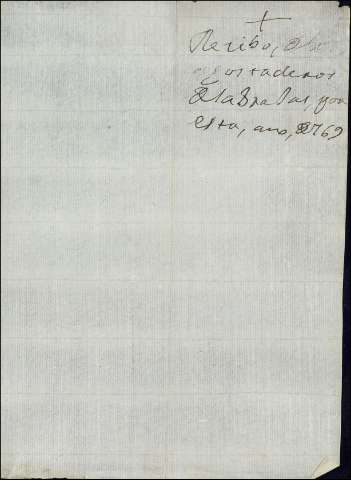 +
Recibo, de los
agostaderos
de la
esta, año, de 769